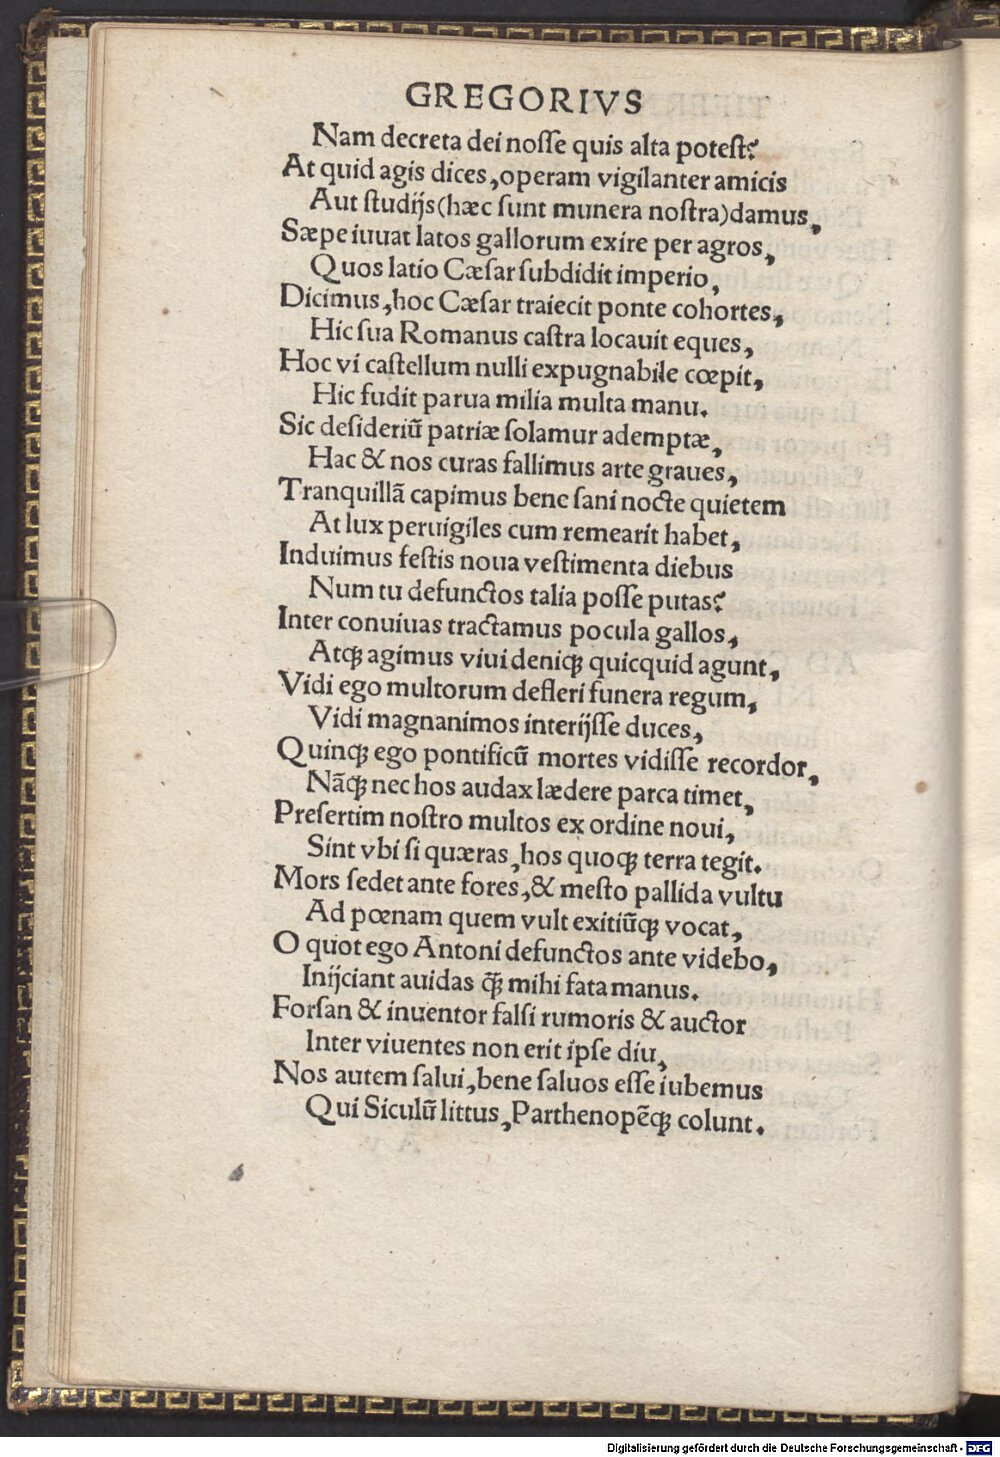 GREGORIVS
Nam decreta dei noſſe quis alta poteſt?
At quid agis dices, operam vigilanter amicis
Aut ſtudijs (hæc ſunt munera noſtra) damus,
Sæpe iuuat latos gallorum exire per agros,
Quos latio Cæſar ſubdidit imperio,
Dicimus, hoc Cæſar traiecit ponte cohortes,
Hic ſua Romanus caſtra locauit eques,
Hoc vi caſtellum nulli expugnabile cœpit,
Hic fudit parua milia multa manu.
Sic deſideriũ patriæ ſolamur ademptæ,
Hac & nos curas fallimus arte graues,
Tranquillã capimus bene ſani nocte quietem
At lux peruigiles cum remearit habet,
Induimus feſtis noua veſtimenta diebus
Num tu defunctos talia poſſe putas?
Inter conuiuas tractamus pocula gallos,
Atq; agimus viui deniq; quicquid agunt,
Vidi ego multorum defleri funera regum,
Vidi magnanimos interijſſe duces,
Quinq; ego pontificũ mortes vidiſſe recordor,
Nãq; nec hos audax lædere parca timet,
Preſertim noſtro multos ex ordine noui,
Sint vbi ſi quæras, hos quoq; terra tegit.
Mors ſedet ante fores, & meſto pallida vultu
Ad pœnam quem vult exitiũq; vocat,
O quot ego Antoni defunctos ante videbo,
Inijciant auidas q̃; mihi fata manus.
Forſan & inuentor falſi rumoris & auctor
Inter viuentes non erit ipſe diu,
Nos autem ſalui, bene ſaluos eſſe iubemus
Qui Siculũ littus, Parthenopẽq; colunt.
Digitalisierung gefördert durch die Deutsche Forschungsgemeinschaft - DFG